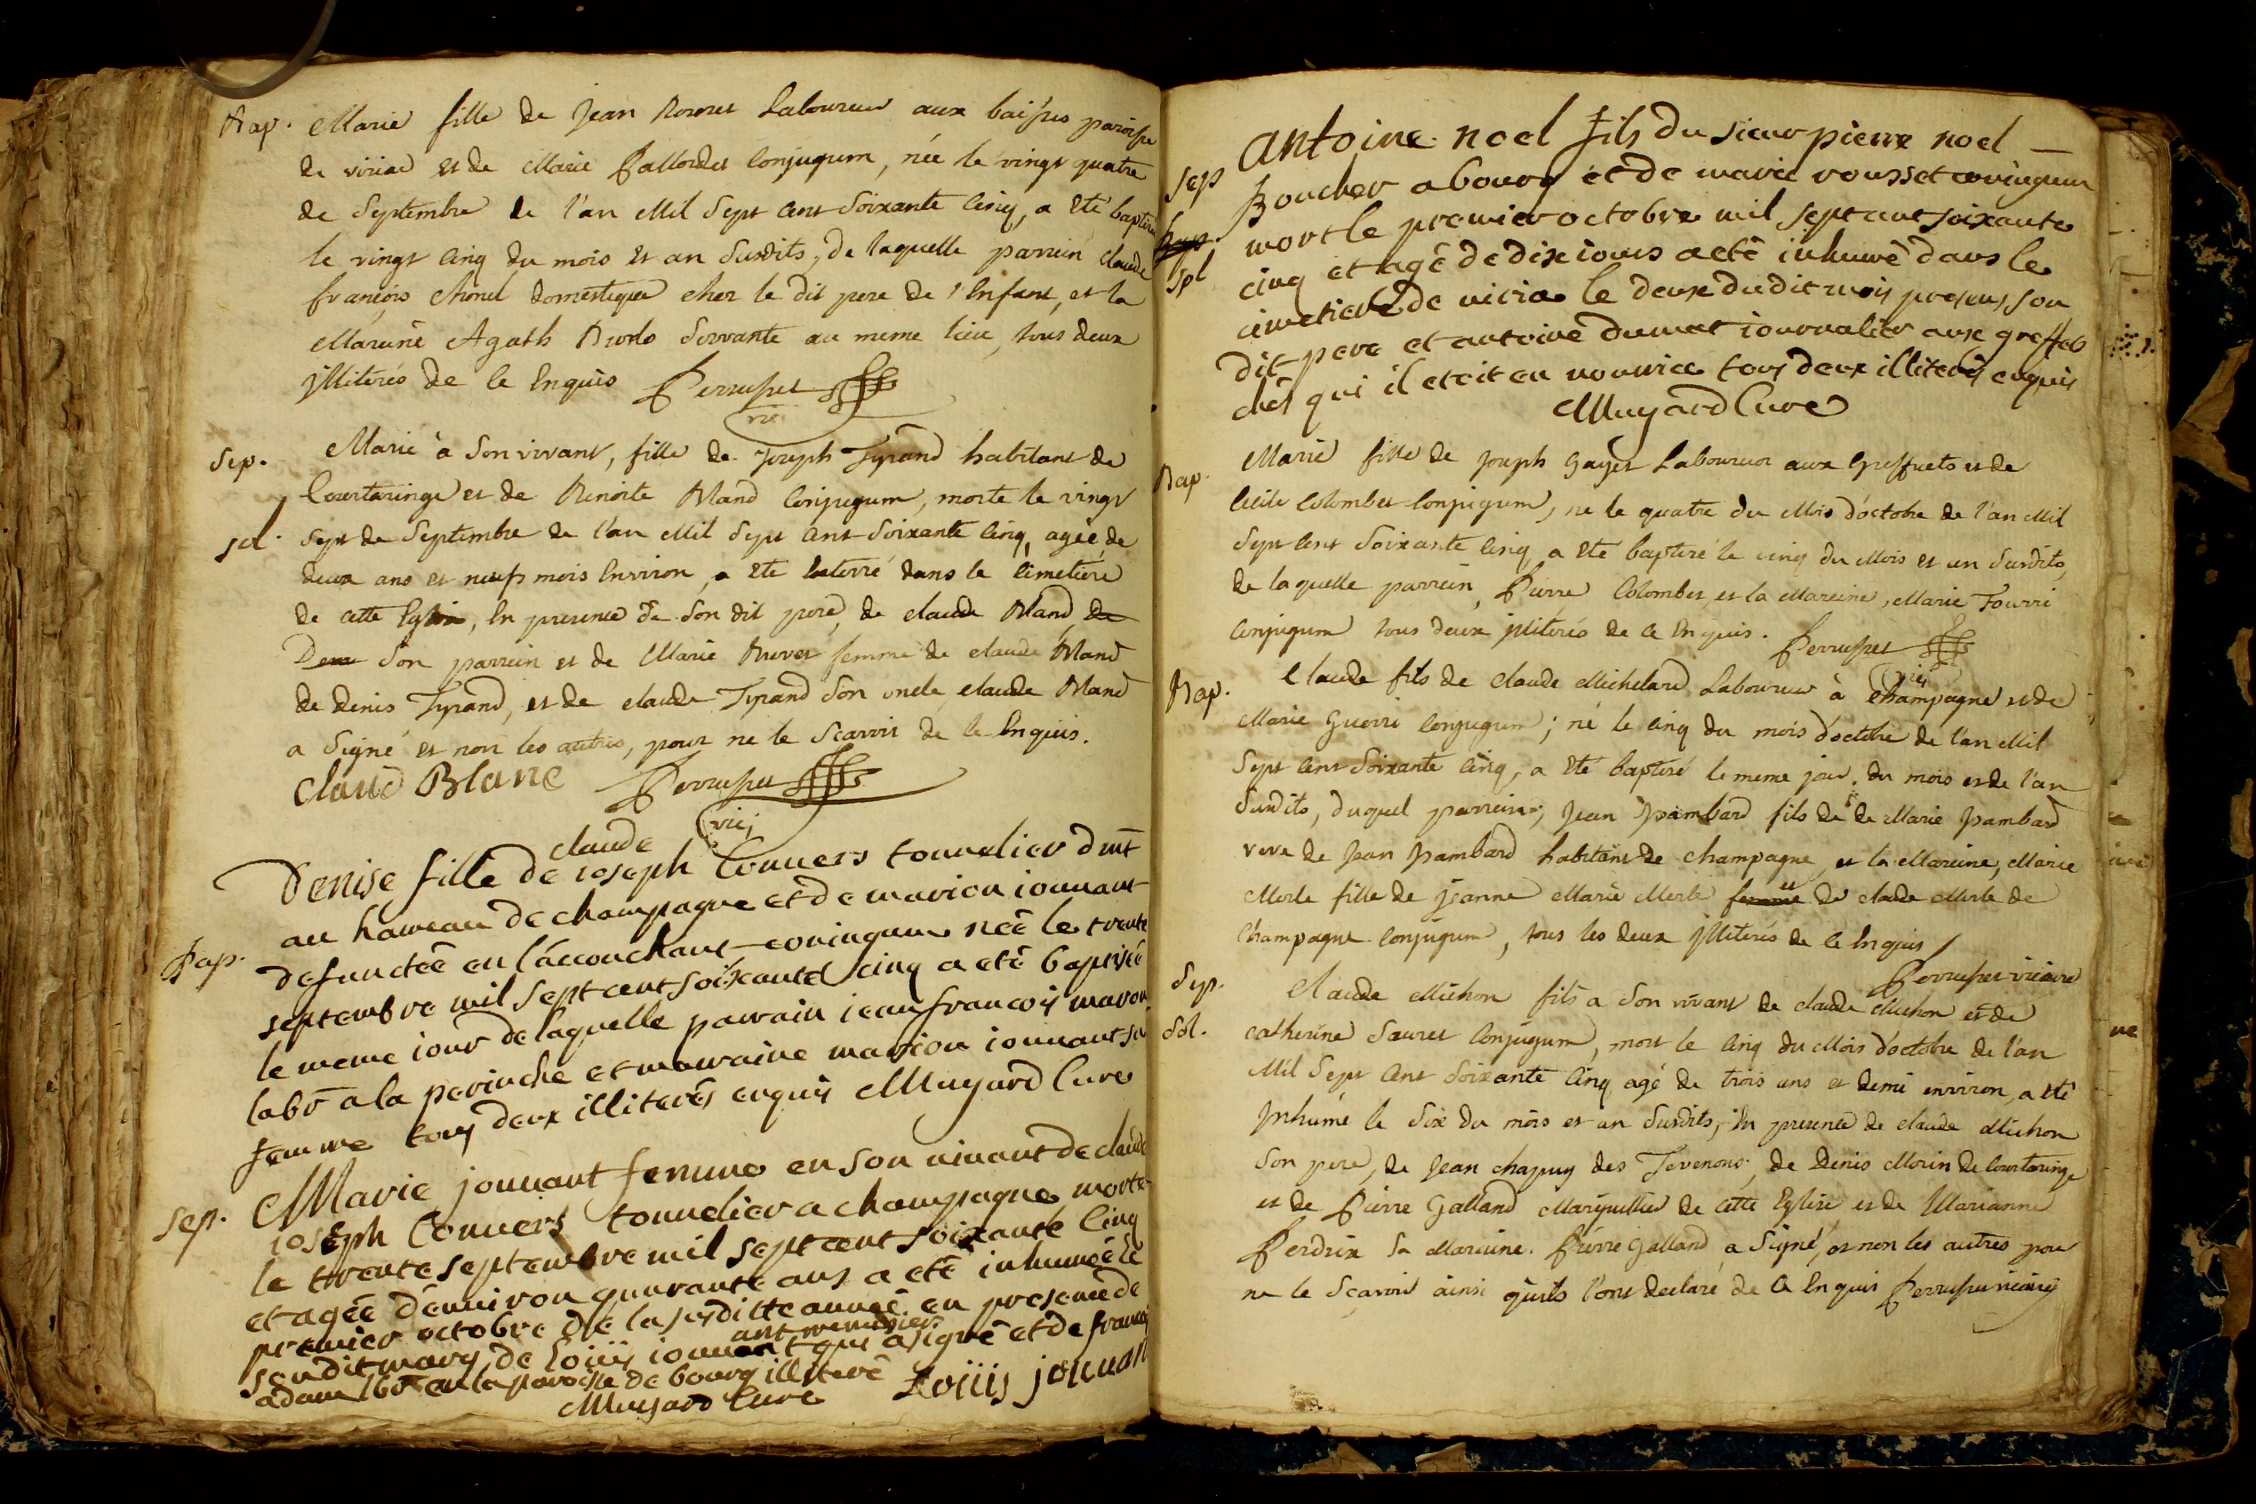 Bap. Marie fille de Jean Laboureur aux baisses paroisse
de viriac et de Marie Pallordet Conjugum, née le vingt quatre
de Septembre de l'an Mil Sept Cent Soixante Cinq, a eté baptisé
le vingt Cinq du mois et an Susdits, de laquelle parrein Claude
françois domestique chez le dit pere de l'Enfant, et la
Mareine Agath Servante au meme lieu, tous deux
jlliterés de ce Enquis Perrusset
vic
Sep. Marie à Son vivant, fille de Joseph Tyrand habitant de
Courtaringe et de Benoite Bland Conjugum, morte le vingt
sol. Sept de Septembre de l'an Mil Sept Cent Soixante Cinq, agée de
deux ans et neufs mois Environ, a eté Enterré dans le Cimetiere
de cette Eglise, En presence de Son dit pere, de claude Bland de
Deux Son parrein et de Marie Buvet femme de claude Bland
de Denis Tyrand, et de claude Tyrand Son oncle, claude Bland
a Signé et non les autres, pour ne le Scavoir de ce Enquis.
Claud Blanc Perrusset
vic
claude
Denise fille de ioseph Conuers tonnelier dmt
au hameau de champagne et de marion iounant
Bap. defunctée en l'accouchant coniugum née le trente
septembre mil sept cent soixante cinq a eté baptisée
le meme iour de laquelle parrain iean françois maron
labr a la perinche et marraine marion iounant sa
femme tous deux illiterés enquis Muyard Cure
Sep. Marie jounant femme en son uiuant de claude
iosEph Conuers tonnelier a champagne morte
le trente septembre mil sept cent soixante Cinq
et agée d'enuiron quarante ans a eté inhumée le
premier octobre de la susditte année en presence de
son dit mary, de Loüis iounant qui a signé et de francois
adam lbr en la paroisse de bourg illiteré Loüis jouuan
Muyard Cure
antoine noel fils du sieur pierre noel
sep Boucher a bourg et de marie rousset coniugum
bap. mort le premier octobre mil sept cent soixante
spl cinq et agé de dix iours a eté inhumé dans le
cimetiere de uiria le deux du dit mois presens, son
dit pere et antoine dumat iournalier aux greffets
chés qui il etoit en nourrice tous deux illiterés enquis
Muyard Cure
Bap. Marie fille de Joseph Gayet Laboureur aux Greffiets et de
Cecile Colombet Conjugum, ne le quatre du Mois d'octobre de l'an Mil
Sept Cent Soixante Cinq, a eté baptisé le cinq du Mois et an Susdits,
de laquelle parrein, Pierre Colombet, et la Mareine, Marie Fourri
Conjugum tous deux jlliterés de ce Enquis. Perrusset
vic
Bap. Claude fils de claude Michelard Laboureur à Champagne et de
Marie Guerri Conjugum; né le Cinq du mois d'octobre de l'an Mil
Sept Cent Soixante Cinq, a eté baptisé le meme jour, du mois et de l'an
Susdits, duquel parrein, Jean Pambard fils de de Marie Pambard
veve de Jean Pambard habitant de champagne, et la Mareine, Marie
Merle fille de Jeanne Marie Merle femme et de claude Merle de
Champagne Conjugum, tous les deux jlliterés de ce Enquis
Perrusset vicaire
Sep. Claude Michon fils a Son vivant de claude Michon et de
Sol. catherine Sauret Conjugum, mort le Cinq du Mois d'octobre de l'an
Mil Sept Cent Soixante Cinq, agé de trois ans et demi environ, a eté
Jnhumé le Six du mois et an Susdits, En presence de claude Michon
Son pere, de Jean chapuy des Tevenons, de Denis Morin de Courtaringe
et de Pierre Galland Marguillier de cette Eglise et de Marianne
Perdrix Sa Mareine. Pierre Galland a Signé, et non les autres pour
ne le Scavoir ainsi qu'ils l'ont declaré de ce Enquis Perrusset vicaire